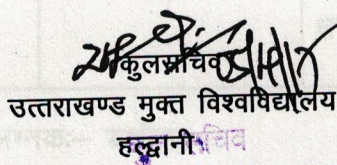 कुलसचिव
उत्तराखण्ड मुक्त विश्वविद्यालय
हल्द्वानी